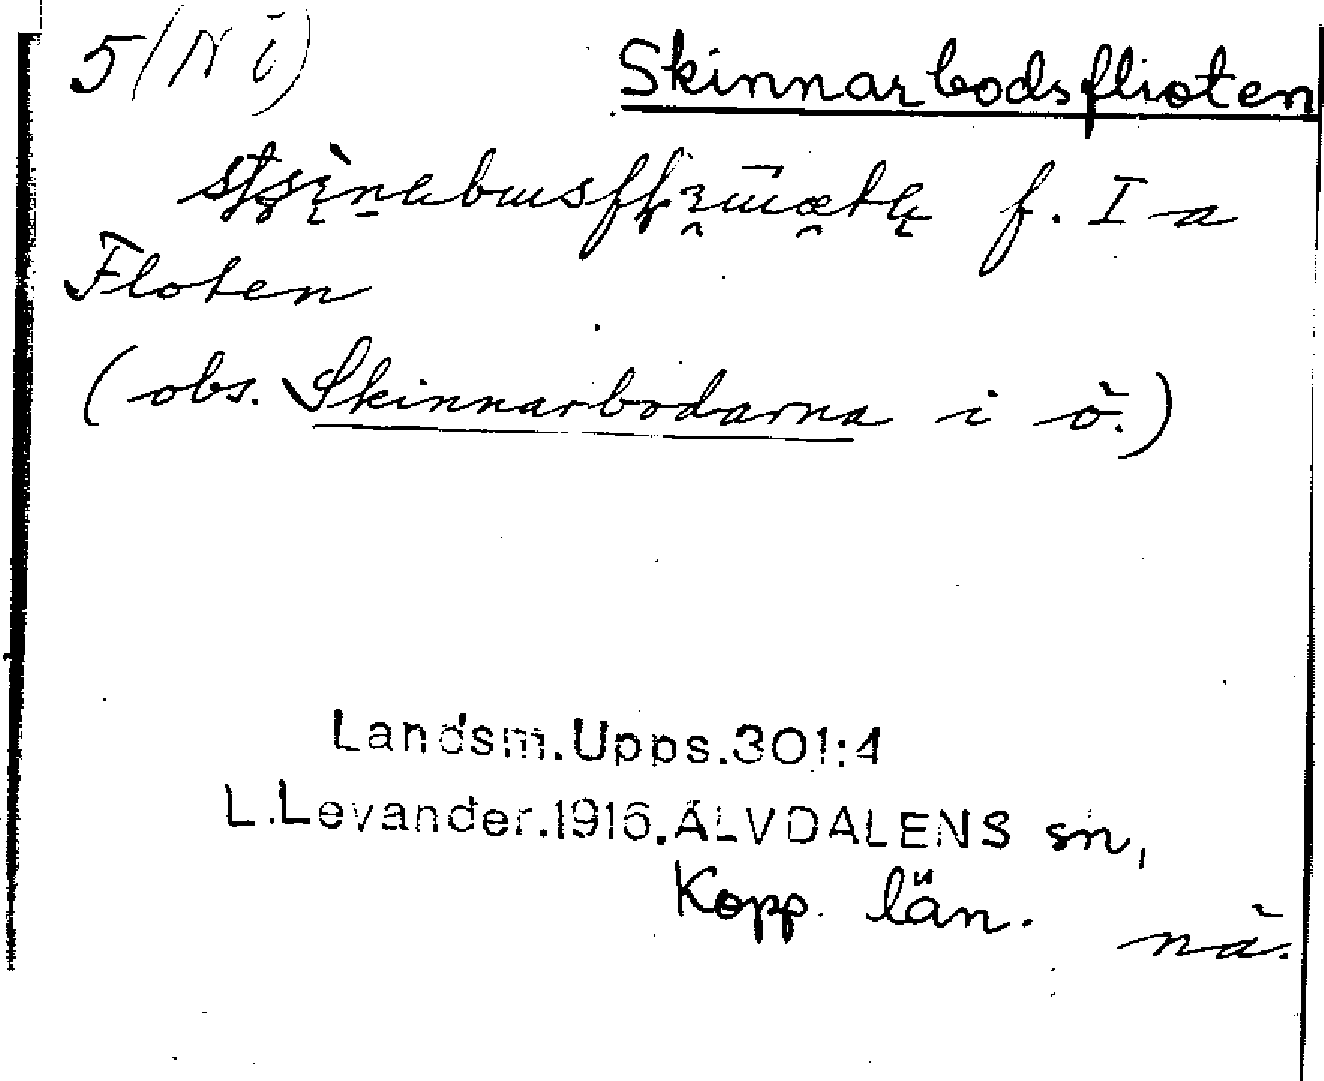 5 (N i) Skinnarbodsflioten
f. I a
Floten
(obs. Skinnarbodarna i ö.)
Landsm.Upps.301:4
L.Levander.1916.ÄLVDALENS sn,
Kopp. län.
nä.